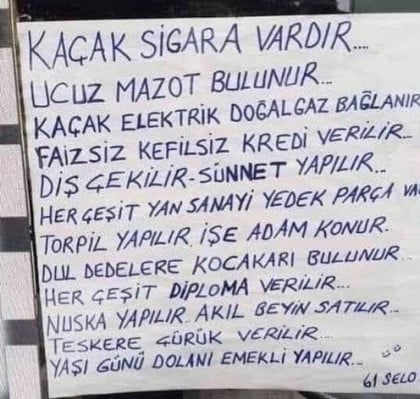 KAÇAK SİGARA VARDIR...
UCUZ MAZOT BULUNUR...
KAÇAK ELEKTRİK DOĞALGAZ BAĞLANIR
FAİZSİZ KEFİLSİZ KREDİ VERİLİR...
DİŞ ÇEKİLİR-SÜNNET YAPILIR...
HER ÇEŞİT YAN SANAYİ YEDEK PARÇA VA
TORPİL YAPILIR İŞE ADAM KONUR.
DUL DEDELERE KOCAKARI BULUNUR...
HER ÇEŞİT DİPLOMA VERİLİR...
NUSKA YAPILIR AKIL BEYİN SATILIR...
TESKERE ÇÜRÜK VERİLİR...
YAŞI GÜNÜ DOLANI EMEKLİ YAPILIR...
61 SELO